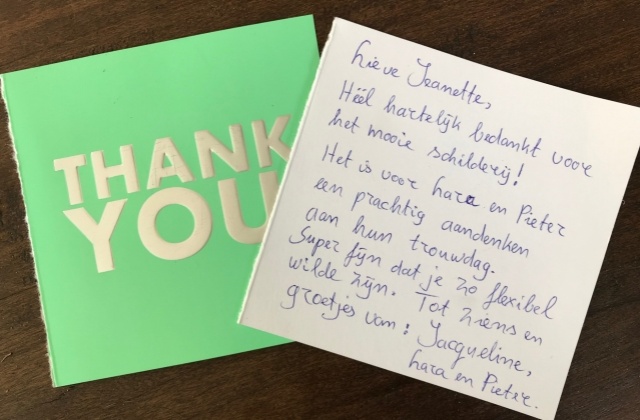 THANK
YOU
Lieve Jeanette,
Héél hartelijk bedankt voor
het mooie schilderij!
Het is voor Lara en Pieter
een prachtig aandenken
aan hun trouwdag.
Super fijn dat je zo flexibel
wilde zijn. Tot ziens en
groetjes van: Jacqueline,
Lara en Pieter.